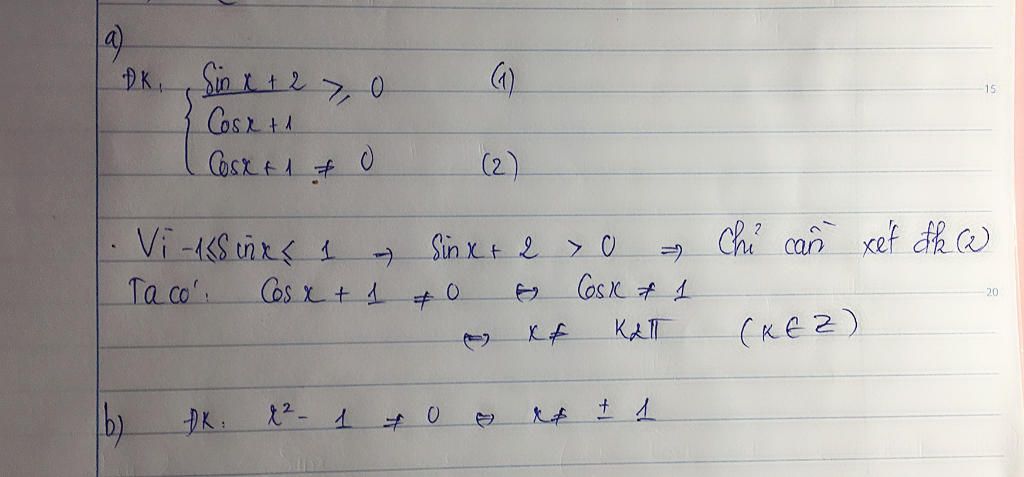 a)
ĐK: Sin x + 2 ≥ 0 (1)
Cosx + 1
Cosx + 1 ≠ 0 (2)
. Vì -1 ≤ Sinx ≤ 1 → Sinx + 2 > 0 ⇒ Chỉ cần xét đk (2)
15
Ta có: Cosx + 1 ≠ 0 ⇔ Cosx ≠ 1
20
⇔ x ≠ K2π (K ∈ Z)
b) ĐK: x² - 1 ≠ 0 ⇔ x ≠ ± 1